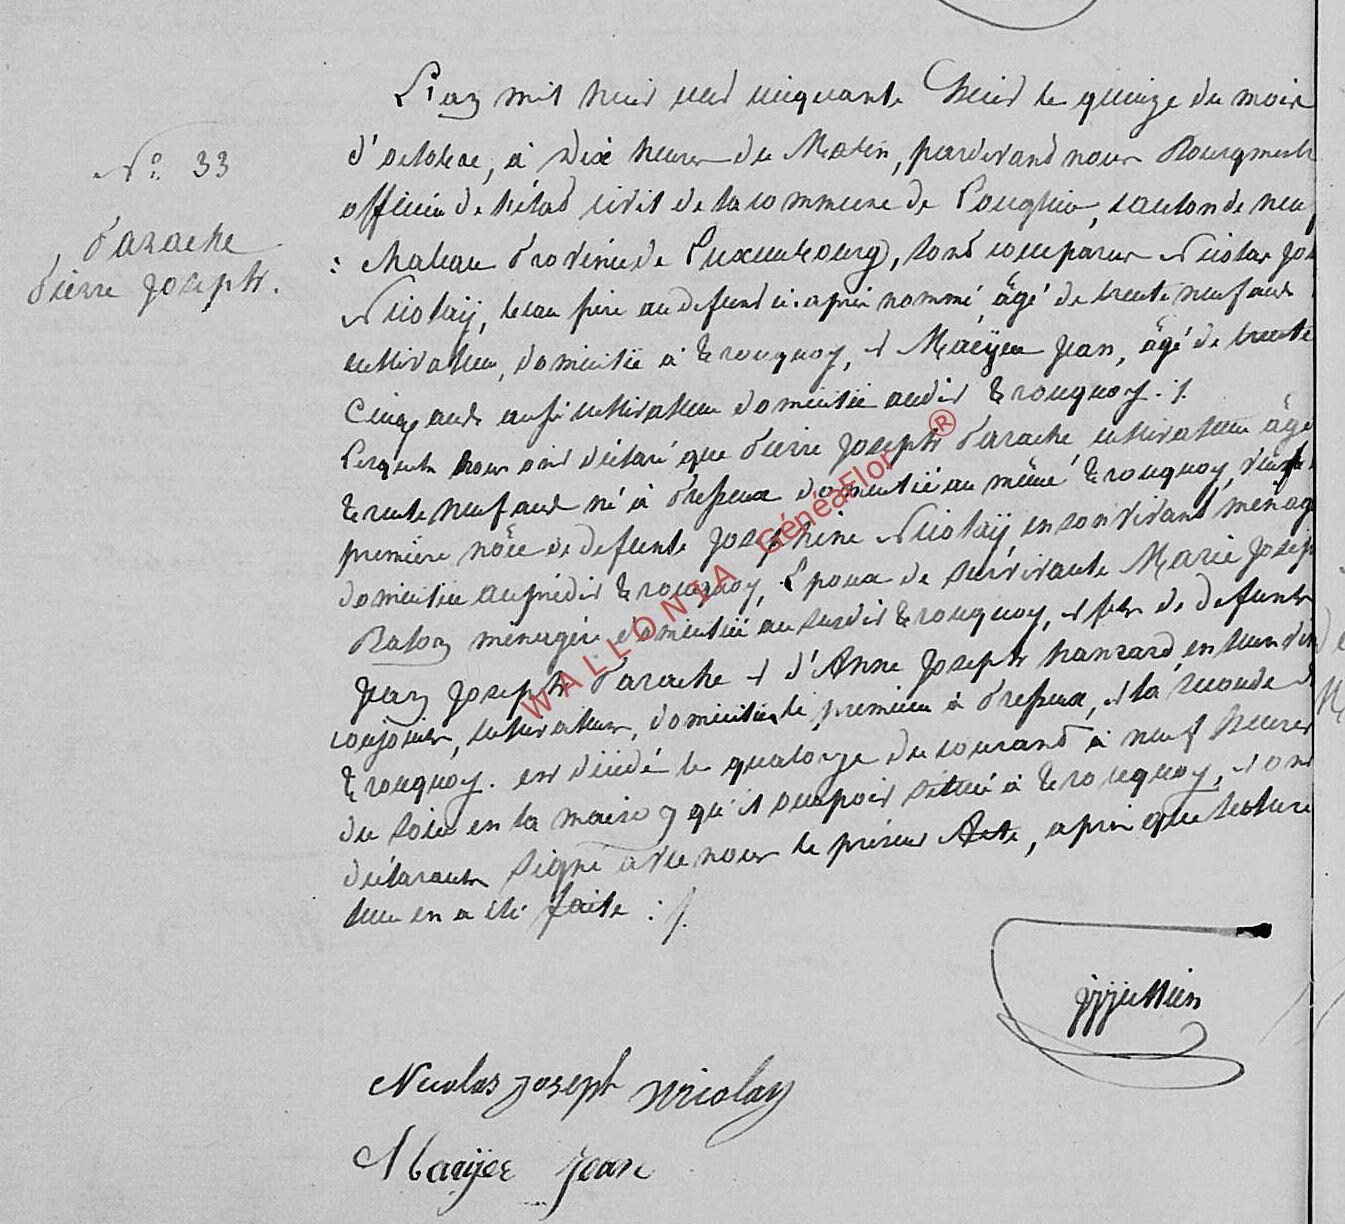 N° 33
Parache
Pierre Joseph.
L'an mil huit cent cinquante huit le quinze du mois
d'octobre, à dix heures du Matin, pardevant nous Bourgmestr
officier de l'état civil de la commune de Longlier, canton de neuf
: chateau Province de Luxembourg, sont comparus Nicolas Jos
Nicolaÿ, beau frère au defunt ci-après nommé, âgé de trente neuf ans
cultivateur, domicilié à Tronquoy, et Maeÿer Jean, âgé de trente
Cinq ans aussi cultivateur domicilié audit Tronquoy ./.
Lesquels nous ont déclaré que Pierre Joseph Parache cultivateur âgé
trente neuf ans né à Presseux domicilié au même Tronquoy, veuf
première nôce de defunte Josephine Nicolaÿ en son vivant ménag
domiciliée au prédit Tronquoy, Epoux de survivante Marie Josep
Baton ménagère domiciliée au susdit Tronquoy, et fils de defunts
Jean Joseph Parache et d'Anne Joseph hansard, en leur viv
conjoints, cultivateurs, domiciliés le premier à Presseux, et la seconde à
Tronquoy. est décédé le quatorze du courant à neuf heures
du soir en la maison qu'il occupoit située à Tronquoy, et ont
déclarants signé avec nous le présent Acte, après que lecture
leur en a été faite : /.
Nicolas joseph nicolay
Maeÿer jean
WALLONIA GénéaFlor ®